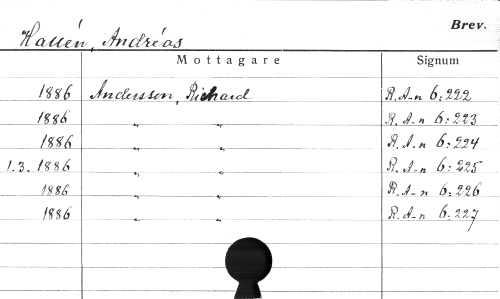 Brev.
Hallén, Andréas
Mottagare Signum
1886 Andersson, Richard R. A-n 6:222
1886 „ „ R. A-n 6:223
1886 „ „ R. A-n 6:224
1.3. 1886 „ „ R. A-n 6:225
1886 „ „ R. A-n 6:226
1886 „ „ R. A-n 6:227